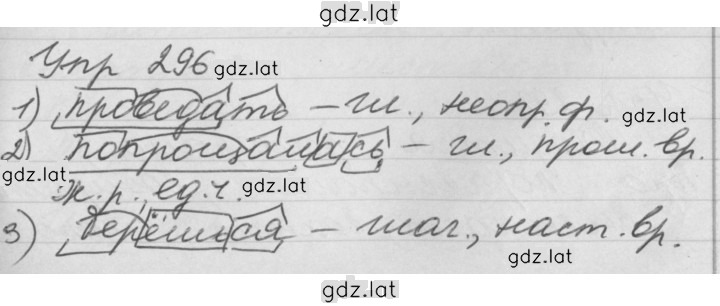 gdz.lat
Упр 296 gdz.lat
1) проведать – гл., неопр. ф. gdz.lat
2) попрощалась – гл., прош. вр.
gdz.lat ж. р., ед. ч. gdz.lat
3) берёшься – глаг., наст. вр.
gdz.lat
gdz.lat